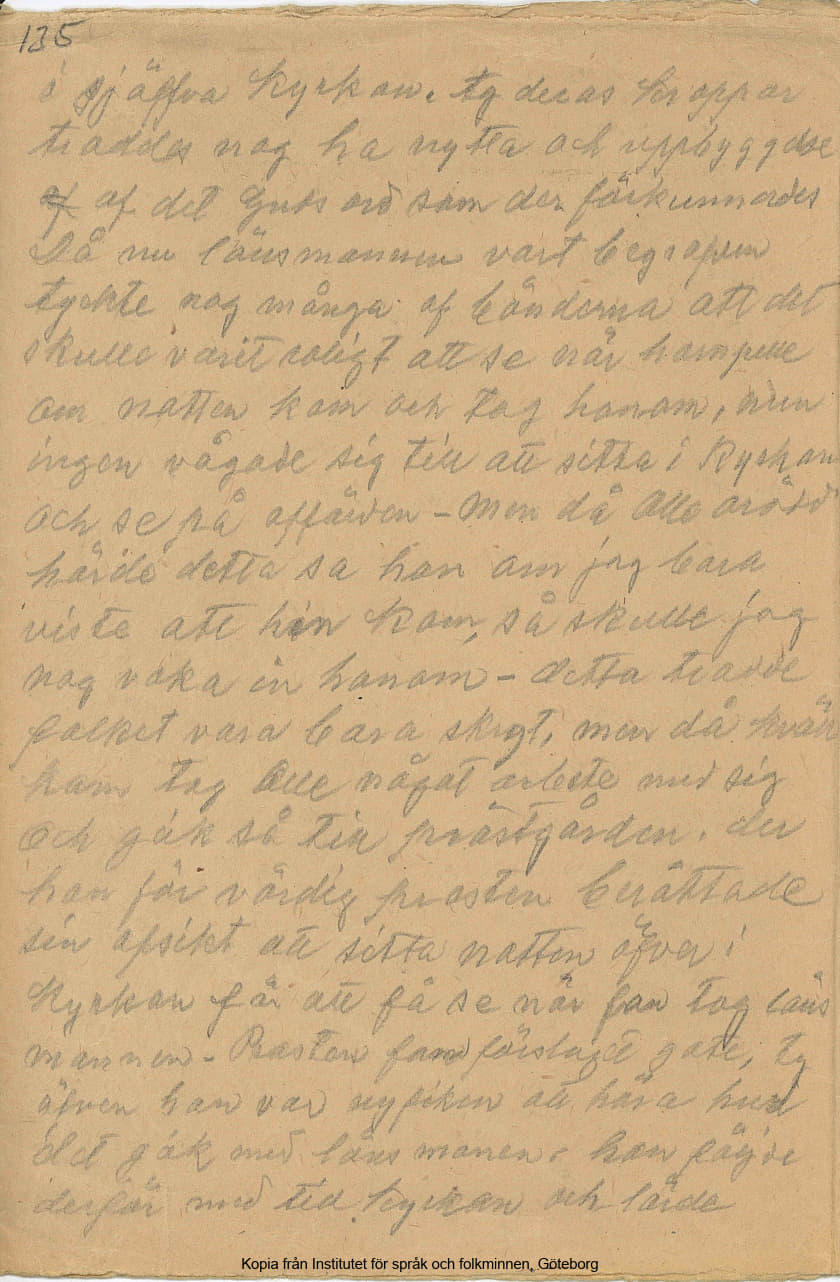 135
i sjäffva Kyrkan. ty deras kroppar
traddes nog ha nytta och uppbyggelse
af af det Guds ord som der förkunnades
Då nu länsmannen vart begrafven
tyckte nog många af bönderna att det
skulle varit roligt att se när
om natten kom och tog honom, men
ingen vågade sig till att sitta i Kyrkan
och se på affären – Men då Olle orädd
hörde detta sa han om jag bara
viste att hin kom, så skulle jag
nog vaka in honom – detta trodde
folket vara bara skryt, men då kväll
kom tog Olle något arbete med sig
och gik så till prästgården. der
han för vördig prosten berättade
sin afsikt att sitta natten öfver i
Kyrkan för att få se när fan tog läns
mannen – Prosten fann förslaget gott, ty
äfven han var nyfiken att höra hur
det gik med läns manen. han
derför med till Kyrkan och
Kopia från Institutet för språk och folkminnen, Göteborg